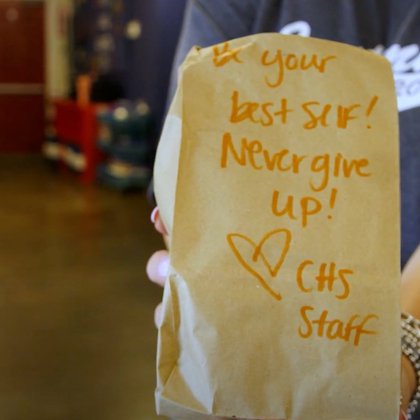 Be your
best self!
Never give
up!
CHS
Staff